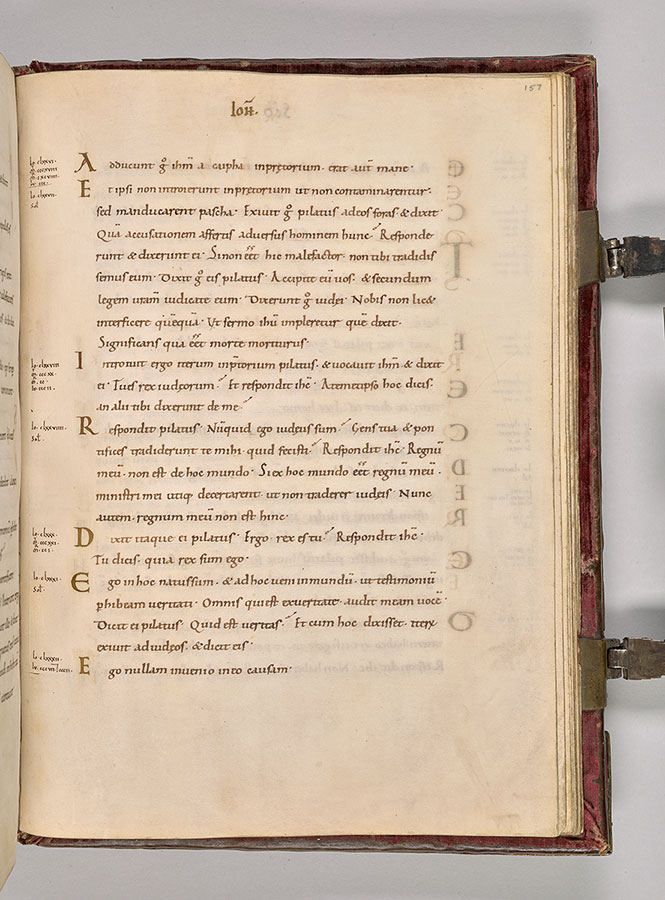 157
Ioh̄.
Adducunt ḡ ihm̄ a caipha inpretorium · erat aut̄ mane ·
Et ipsi non introierunt inpretorium ut non contaminarentur ·
sed manducarent pascha · Exiuit ḡ pilatus adeos foras & dixit ·
Quā accusationem affertis aduersus hominem hunc · Responde
runt & dixerunt ei · Sinon eēt hic malefactor · non tibi tradidis
semus eum · Dixit ḡ eis pilatus · Accipite eū uos · & secundum
legem urām iudicate eum · Dixerunt ḡ iudei · Nobis non lic&
interficere quēquā · Ut sermo ihū impleretur quē dixit ·
Significans qua eēt morte moriturus ·
Introiuit ergo iterum inp̄torium pilatus · & uocauit ihm̄ · & dixit
ei · Tu es rex iudęorum · Et respondit ihc̄ · Atemetipso hoc dicis ·
an alii tibi dixerunt de me ·
Respondit pilatus · Nūquid ego iudeus sum · Gens tua & pon
tifices tradiderunt te mihi · quid fecisti · Respondit ihc̄ · Regnū
meū · non est de hoc mundo · Si ex hoc mundo eēt regnū meū ·
ministri mei utiq; decertarent · ut non traderer iudeis · Nunc
autem · regnum meū non est hinc ·
Dixit itaque ei pilatus · Ergo · rex es tu · Respondit ihc̄ ·
Tu dicis · quia rex sum ego ·
Ego in hoc natus sum · & ad hoc ueni in mundū · ut testimoniū
phibeam ueritati · Omnis qui est ex ueritate · audit meam uocē ·
Dicit ei pilatus · Quid est ueritas · Et cum hoc dixisset · iterū
exiuit ad iudęos · & dicit eis ·
Ego nullam inuenio in eo causam ·